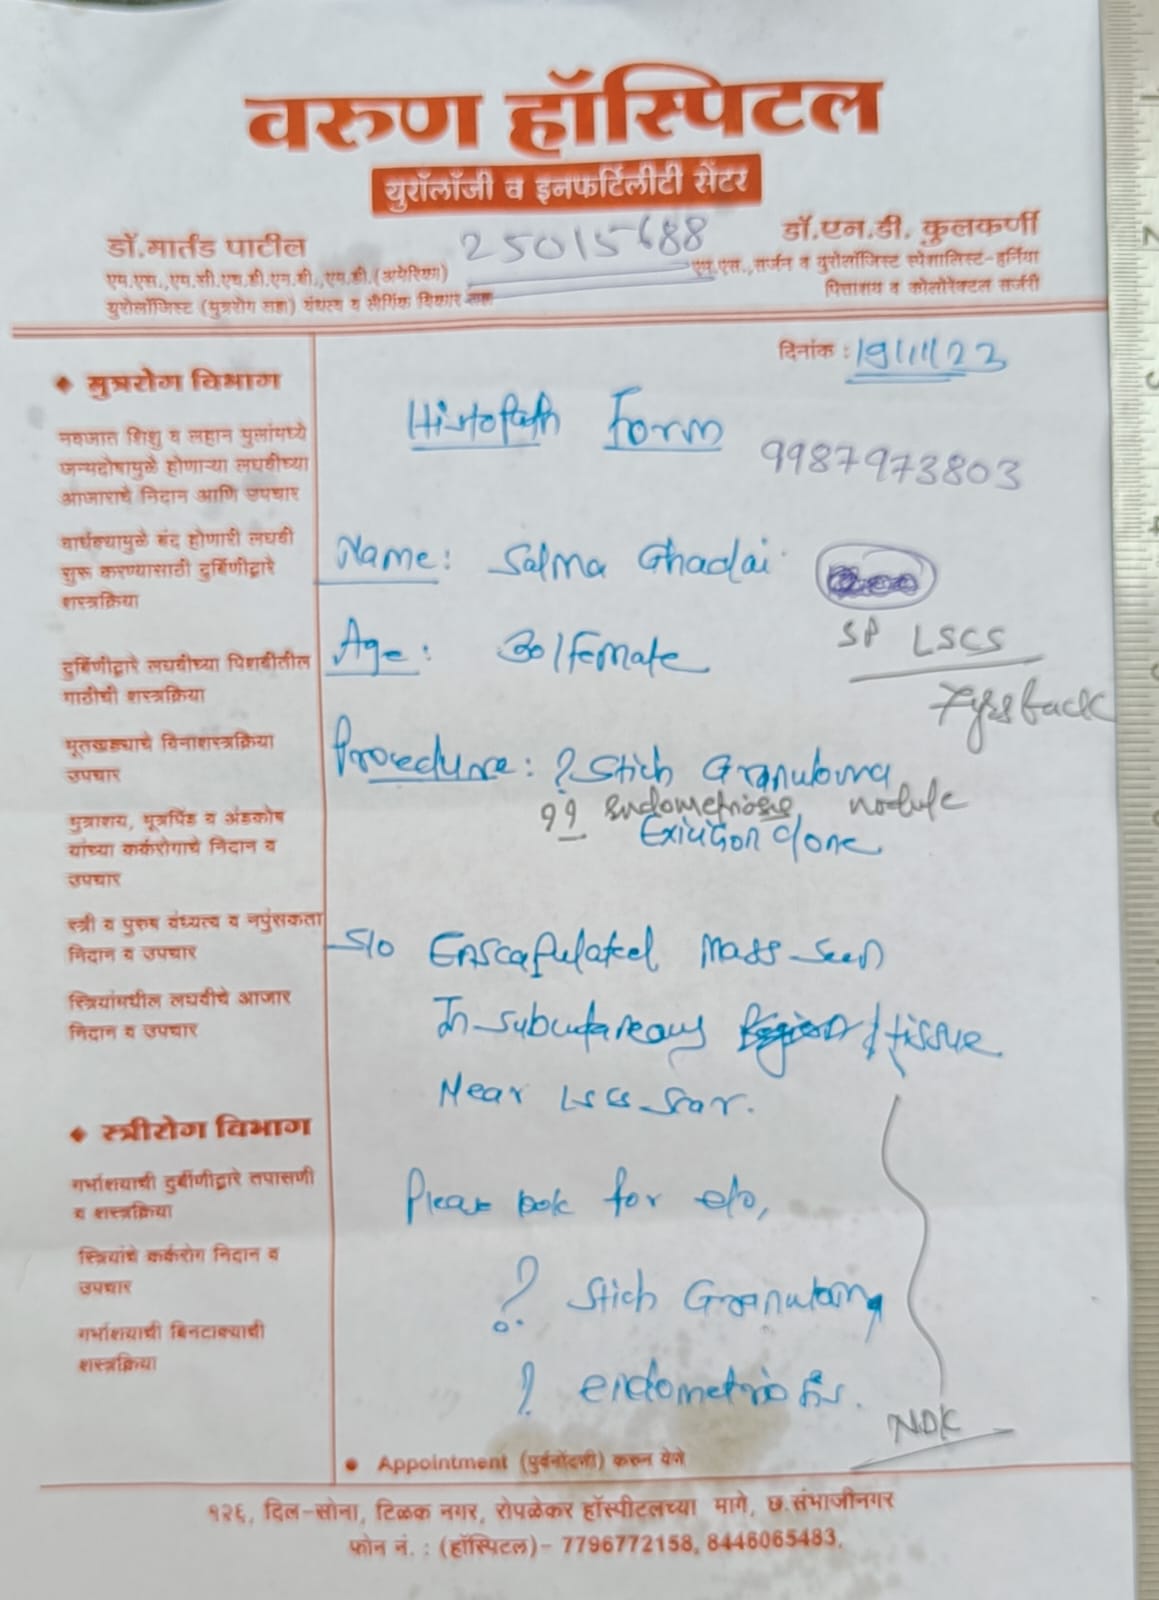 वरुण हॉस्पिटल
युरॉलॉजी व इनफर्टिलीटी सेंटर
डॉ.मार्तंड पाटील
एम.एस.,एम.सी.एच.डी.एन.बी.,एम.डी.(अमेरिका)
युरोलॉजिस्ट (मुत्ररोग तज्ञ) वंधत्व व लैंगिक विकार तज्ञ
25015688
डॉ.एन.डी. कुलकर्णी
एम.एस.,सर्जन व युरोलॉजिस्ट स्पेशालिस्ट-हर्निया
पित्ताशय व कोलोरेक्टल सर्जरी
दिनांक : 19/11/23
Histopath Form
9987973803
Name: Salma Ghadai
SP LSCS
7yrs back
Age: 30/Female
Procedure: ? Stich Granuloma
?? endometriosis nodule
Exicision done
S/O Enscapulated Mass seen
In subcutaneous tissue
Near LSCS scar.
Please look for e/o,
? Stich Granuloma
? endometriosis.
NDK
◆ मुत्ररोग विभाग
नवजात शिशु व लहान मुलांमध्ये
जन्मदोषामुळे होणाऱ्या लघवीच्या
आजाराचे निदान आणि उपचार
वार्धक्यामुळे बंद होणारी लघवी
सुरू करण्यासाठी दुर्बिणीद्वारे
शस्त्रक्रिया
दुर्बिणीद्वारे लघवीच्या पिशवीतील
गाठीची शस्त्रक्रिया
मूतखड्याचे विनाशस्त्रक्रिया
उपचार
मुत्राशय, मूत्रपिंड व अंडकोष
यांच्या कर्करोगाचे निदान व
उपचार
स्त्री व पुरुष वंध्यत्व व नपुंसकता
निदान व उपचार
स्त्रियांमधील लघवीचे आजार
निदान व उपचार
◆ स्त्रीरोग विभाग
गर्भाशयाची दुर्बीणीद्वारे तपासणी
व शस्त्रक्रिया
स्त्रियांचे कर्करोग निदान व
उपचार
गर्भाशयाची बिनटाक्याची
शस्त्रक्रिया
• Appointment (पुर्वनोंदणी) करुन येणे
१२६, दिल-सोना, टिळक नगर, रोपळेकर हॉस्पीटलच्या मागे, छ.संभाजीनगर
फोन नं. : (हॉस्पिटल)- 7796772158, 8446065483.